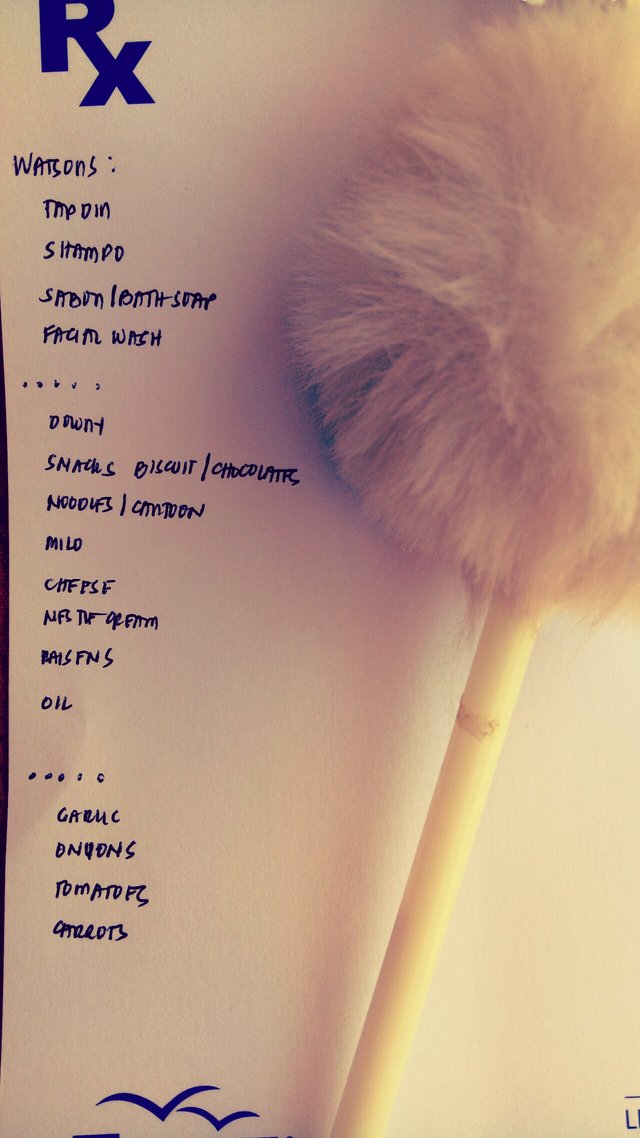 Rx
WATSONS:
TAPDIN
SHAMPO
SABON/BATH SOAP
FACIAL WASH
.....
DOWNY
SNACKS BISCUIT/CHOCOLATES
NOODLES/CANTOON
MILO
CHEESE
NESTLE CREAM
RAISENS
OIL
.....
GARLIC
ONYONS
TOMATOES
CARROTS